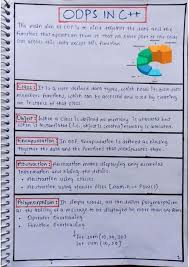 OOPS IN C++
The main aim of OOP is to bind together the data and the
function that operates them so that no other part of the code
can access this data except this function.
Class: It is a user defined data types, which
member functions, which can be accessed and used by creating
an instance of that class.
Object: When a class is defined no memory is allocated but
when it is instantiated (i.e. object is created) memory is allocated.
Encapsulation: In OOP, Encapsulation is defined as binding
together the data and the functions that manipulates them.
Abstraction: Abstraction means displaying only essential
information and hiding the details.
Abstraction using classes
Abstraction using Header files (math.h → pow())
Polymorphism: In simple words, we can define polymorphism as
the ability of a message to be displayed in more than one form.
Operator Overloading
Function Overloading
int sum (10, 20, 30)
int sum (10, 20)